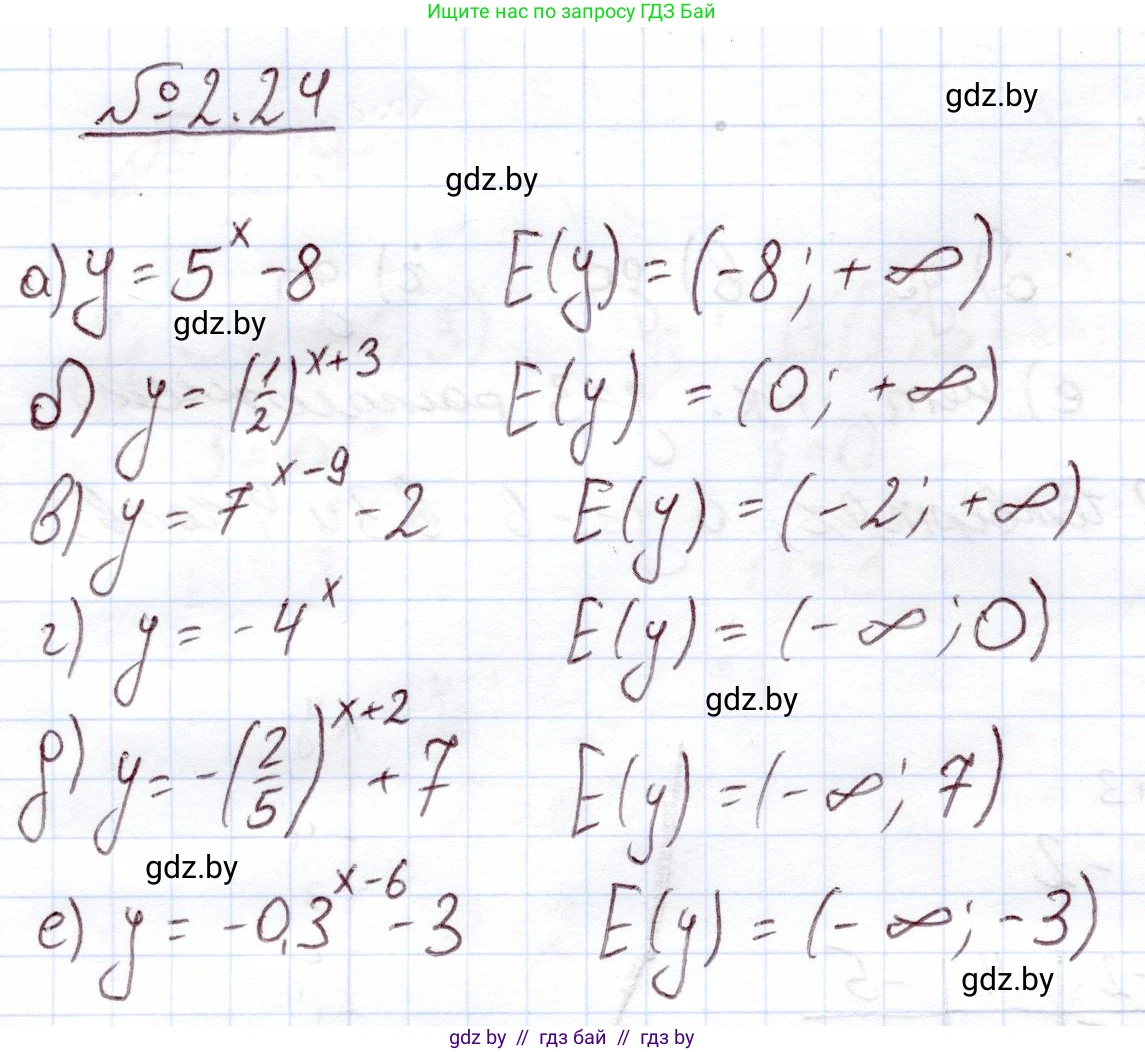 Ищите нас по запросу ГДЗ Бай
№2.24
gdz.by
gdz.by
а) y = 5^x - 8 E(y) = (-8; +∞)
gdz.by
б) y = (1/2)^(x+3) E(y) = (0; +∞)
в) y = 7^(x-9) - 2 E(y) = (-2; +∞)
г) y = -4^x E(y) = (-∞; 0)
gdz.by
д) y = -(2/5)^(x+2) + 7 E(y) = (-∞; 7)
gdz.by
е) y = -0,3^(x-6) - 3 E(y) = (-∞; -3)
gdz.by
gdz by // гдз бай // gdz by